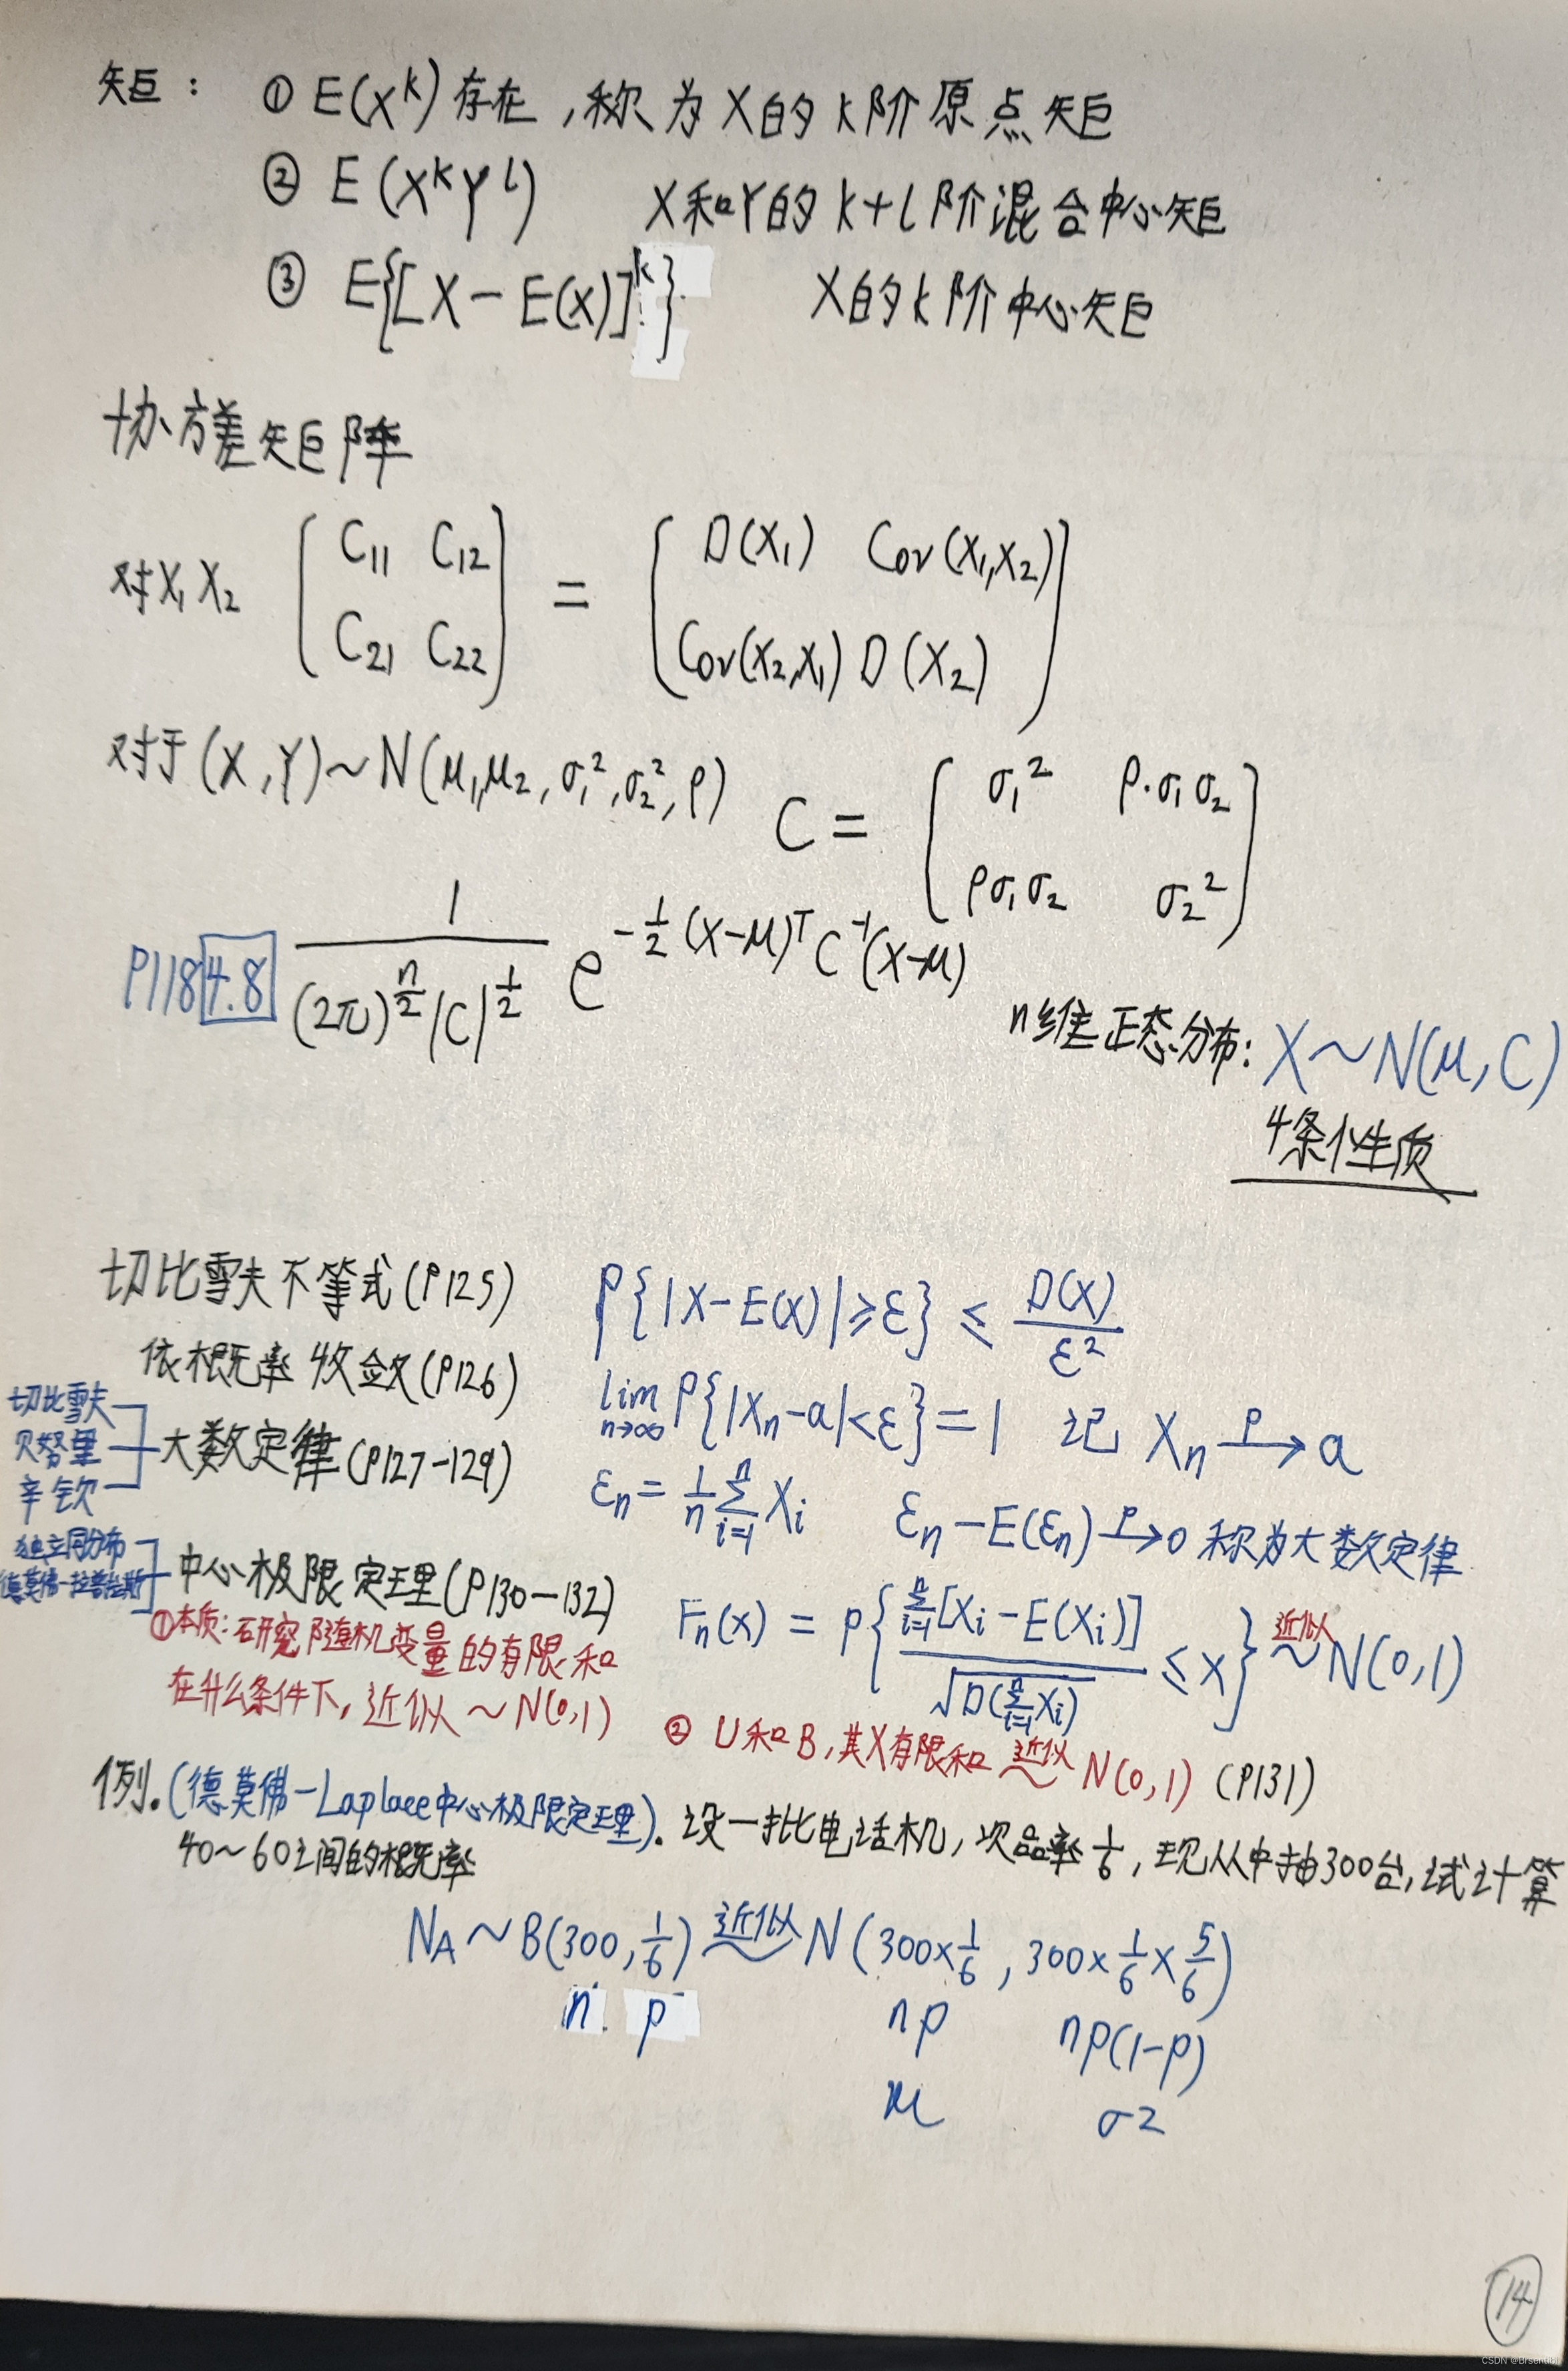 矩： ① E(X^k)存在，称为X的k阶原点矩
② E(X^k Y^l) X和Y的k+l阶混合中心矩
③ E{[X-E(X)]^k} X的k阶中心矩
协方差矩阵
对X₁X₂ [C₁₁ C₁₂; C₂₁ C₂₂] = [D(X₁) Cov(X₁,X₂); Cov(X₂,X₁) D(X₂)]
对于(X,Y)~N(μ₁,μ₂,σ₁²,σ₂²,ρ) C = [σ₁² ρ·σ₁σ₂; ρσ₁σ₂ σ₂²]
P118 4.8 1/((2π)^(n/2)|C|^(1/2)) e^(-1/2 (X-μ)^T C^(-1)(X-μ))
n维正态分布: X~N(μ,C)
4条性质
切比雪夫不等式(P125) P{|X-E(X)|≥ε} ≤ D(X)/ε²
依概率收敛(P126) lim n→∞ P{|Xn-a|<ε}=1 记 Xn —P→ a
切比雪夫
贝努里
辛钦
大数定律(P127-129) εn = 1/n Σ(i=1..n) Xi εn-E(εn) —P→ 0 称为大数定律
独立同分布
德莫佛-拉普拉斯
中心极限定理(P130-132) Fn(x) = P{ Σ(i=1..n)[Xi-E(Xi)] / √D(Σ(i=1..n)Xi) ≤ x } 近似~ N(0,1)
①本质: 研究随机变量的有限和
在什么条件下, 近似~N(0,1)
② U和B, 其X有限和 近似~ N(0,1) (P131)
例.(德莫佛-Laplace中心极限定理). 设一批电话机, 次品率1/6, 现从中抽300台, 试计算
40~60之间的概率
N_A ~ B(300, 1/6) 近似~ N(300×1/6, 300×1/6×5/6)
n. p np np(1-p)
μ σ2
14